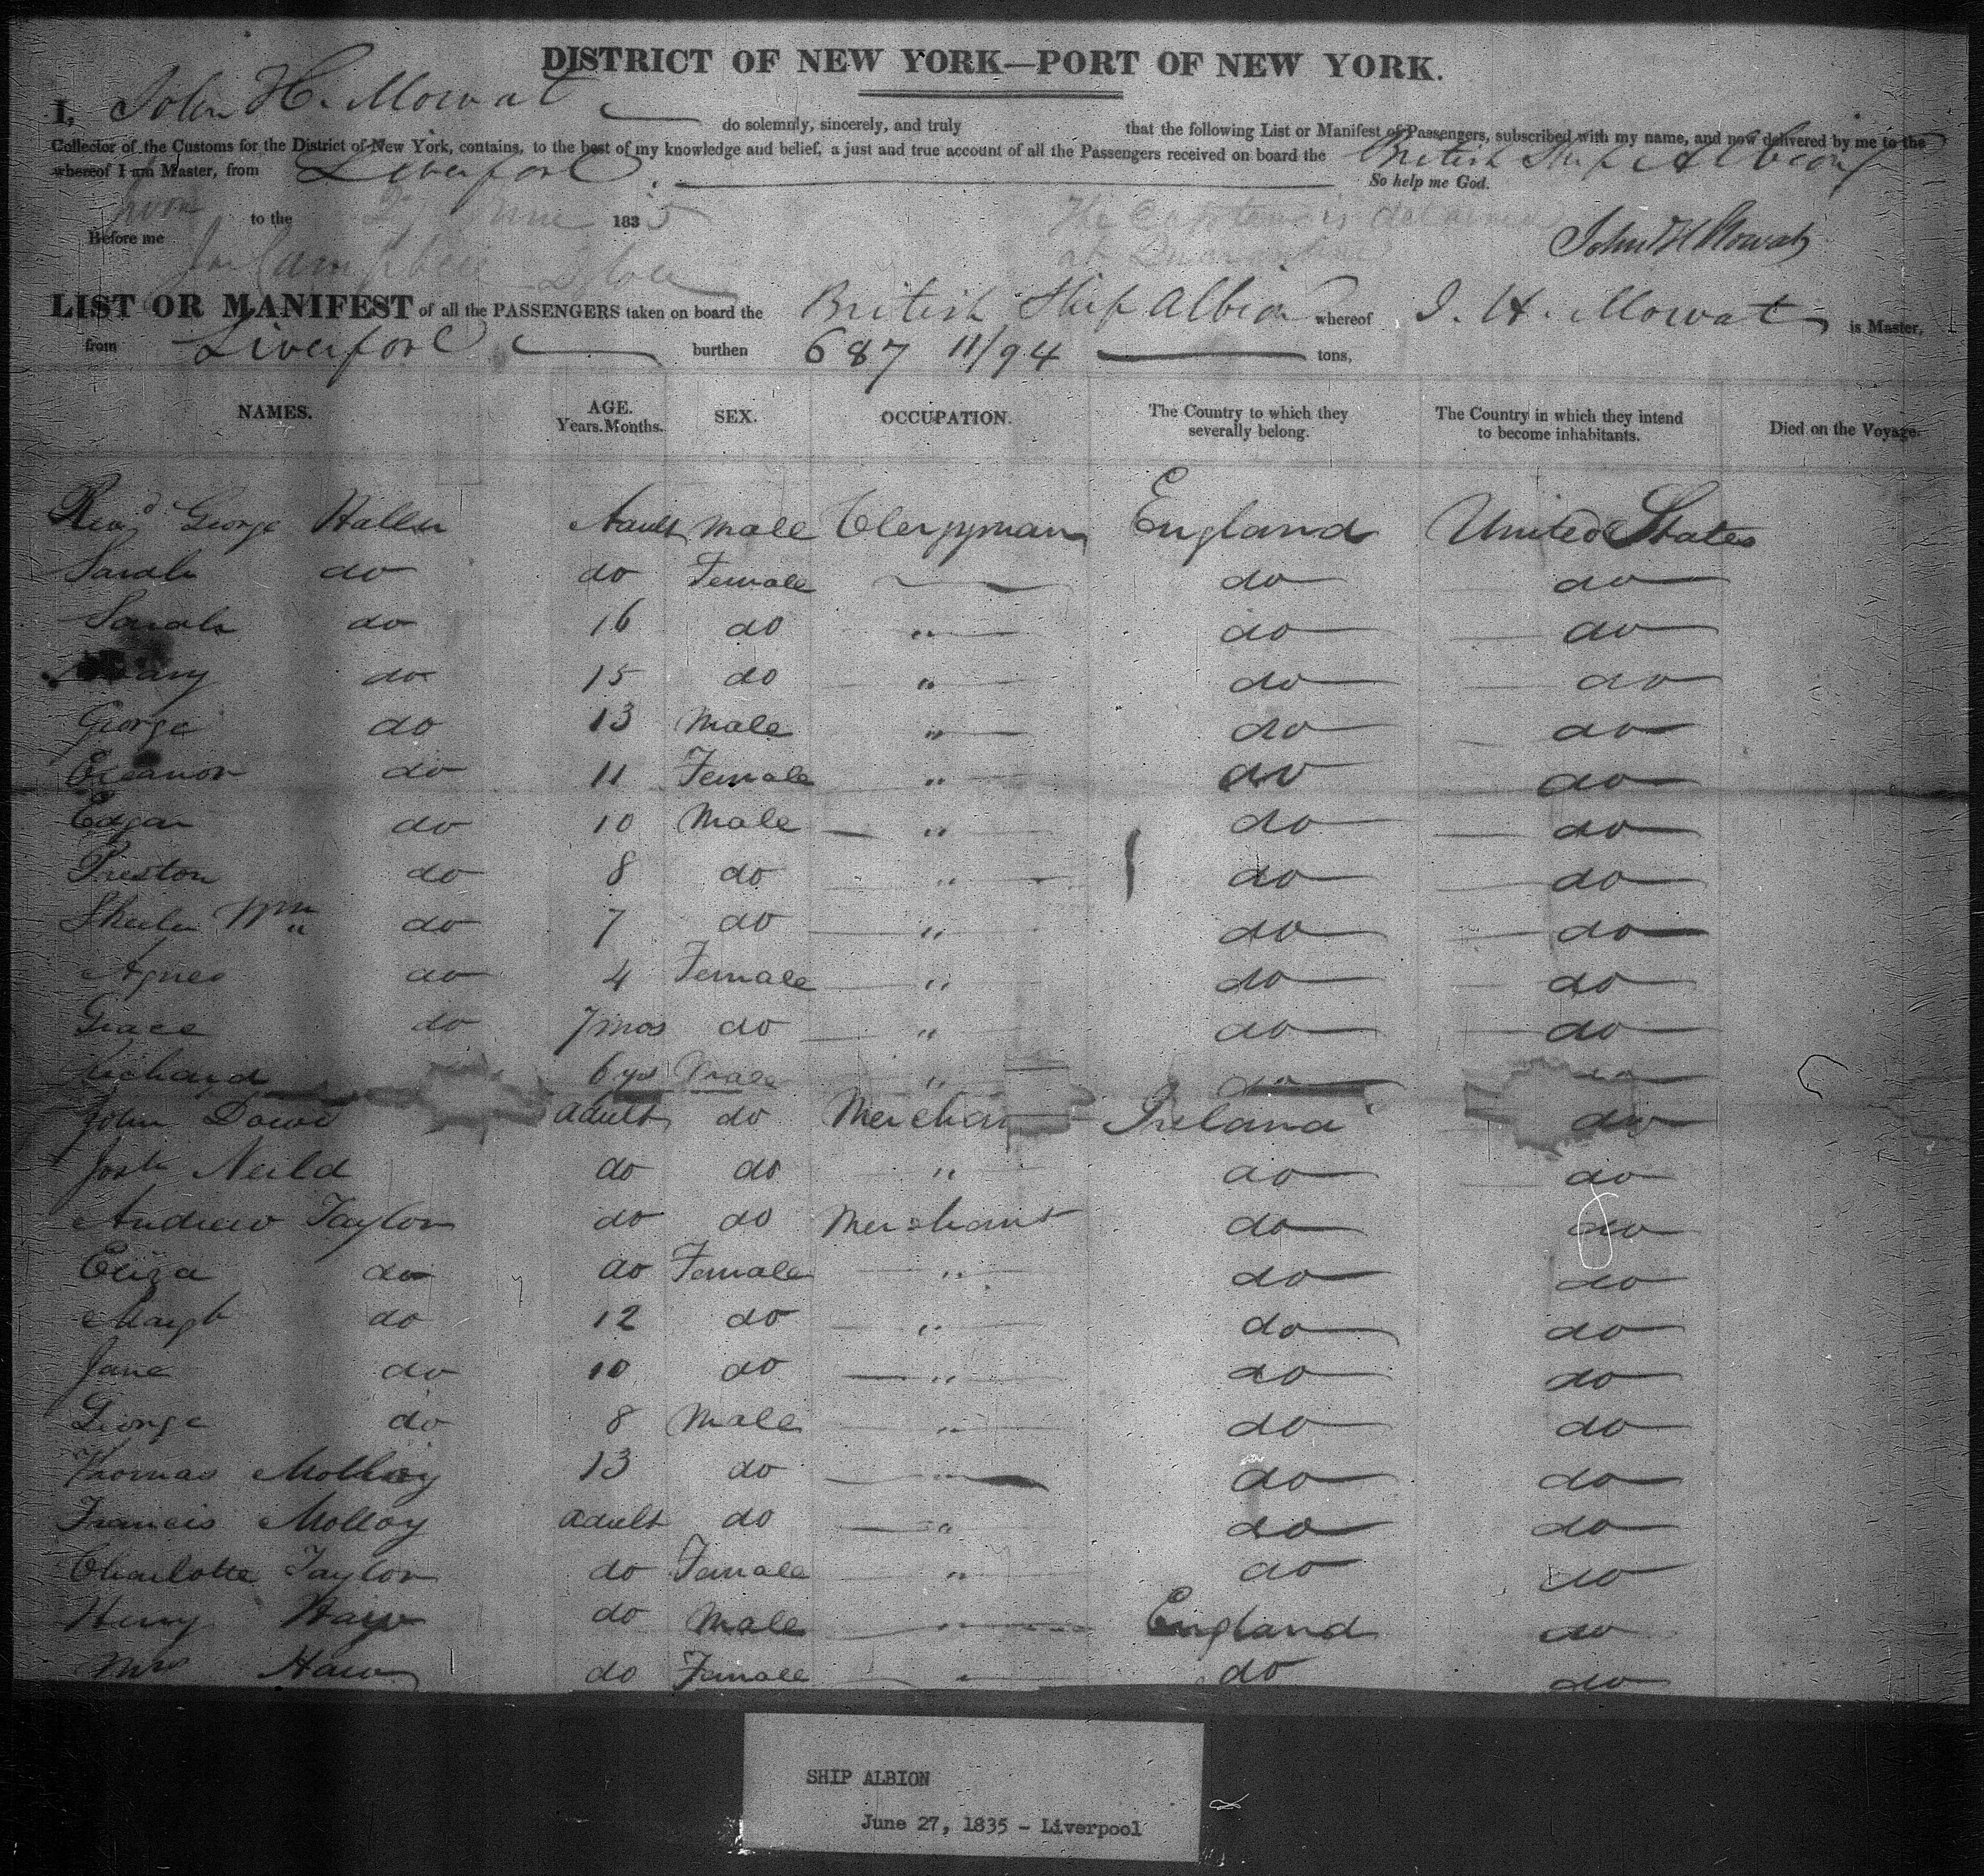 DISTRICT OF NEW YORK—PORT OF NEW YORK.
I, John H. Mowat do solemnly, sincerely, and truly that the following List or Manifest of Passengers, subscribed with my name, and now delivered by me to the
Collector of the Customs for the District of New York, contains, to the best of my knowledge and belief, a just and true account of all the Passengers received on board the British Ship Albion
whereof I am Master, from Liverpool So help me God.
to the 27 June 1835 The Captain is detained
Before me at Quarantine John H Mowat
Campbell
LIST OR MANIFEST of all the PASSENGERS taken on board the British Ship Albion whereof J. H. Mowat is Master,
from Liverpool burthen 687 11/94 tons,
NAMES. AGE. Years. Months. SEX. OCCUPATION. The Country to which they severally belong. The Country in which they intend to become inhabitants. Died on the Voyage.
Revd George Adult Male Clergyman England United States
Sarah do do Female do do
Sarah do 16 do " do do
Mary do 15 do " do do
George do 13 Male " do do
Eleanor do 11 Female " do do
Edgar do 10 Male " do do
Preston do 8 do " do do
Wm do 7 do " do do
Agnes do 4 Female " do do
Grace do 7 mos do " do do
Richard 6 ys Male " do do
John Dowd adult do Merchan Ireland do
Josh Neild do do " do do
Andrew Taylor do do Merchant do do
Eliza do do Female " do do
Margt do 12 do " do do
Jane do 10 do " do do
George do 8 Male " do do
Thomas Molloy 13 do " do do
Francis Molloy adult do " do do
Charlotte Taylor do Female " do do
Henry Haw do Male " England do
Mrs Haw do Female " do do
SHIP ALBION
June 27, 1835 - Liverpool